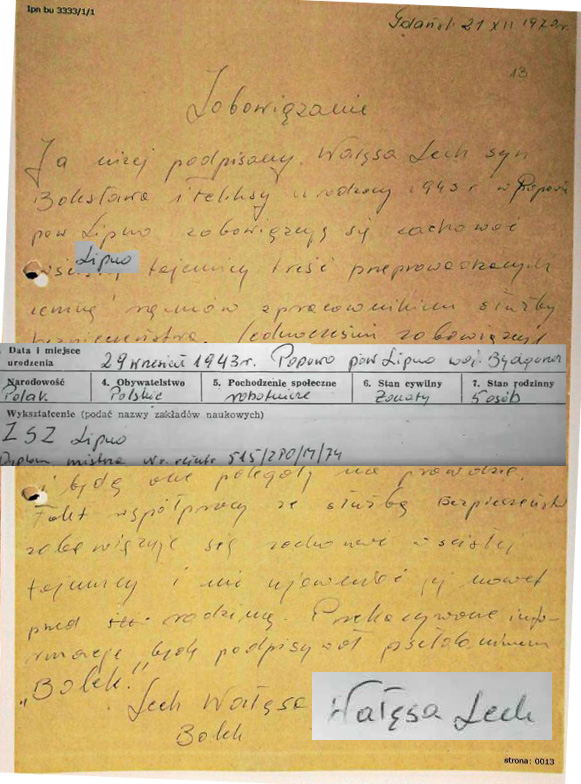 Ipn bu 3333/1/1
Gdańsk 21 XII 1970r.
13
Zobowiązanie
Ja niżej podpisany Wałęsa Lech syn
Bolesława i Feliksy urodzony 1943 r w Popowie
pow Lipno zobowiązuję się zachować
Lipno
tajemnicy treść przeprowadzonych
zemną rozmów z pracownikiem służby
Jednocześnie zobowiązuję
Data i miejsce
urodzenia
29 wrzesień 1943r. Popowo pow Lipno woj. Bydgoszcz
Narodowość 4. Obywatelstwo 5. Pochodzenie społeczne 6. Stan cywilny 7. Stan rodzinny
Polak. Polskie robotnicze Żonaty 5 osób
Wykształcenie (podać nazwy zakładów naukowych)
ZSZ Lipno
Dyplom mistrza Nr 515/280/M/74
i będą one polegały na prawdzie.
Fakt współpracy ze służbą Bezpieczeńst
zobowiązuję się zachować w ścisłej
tajemnicy i nie ujawniać jej nawet
przed rodziną. Przekazywane info-
rmacje będę podpisywał pseudonimem
„Bolek."
Lech Wałęsa
Wałęsa Lech
Bolek
strona: 0013